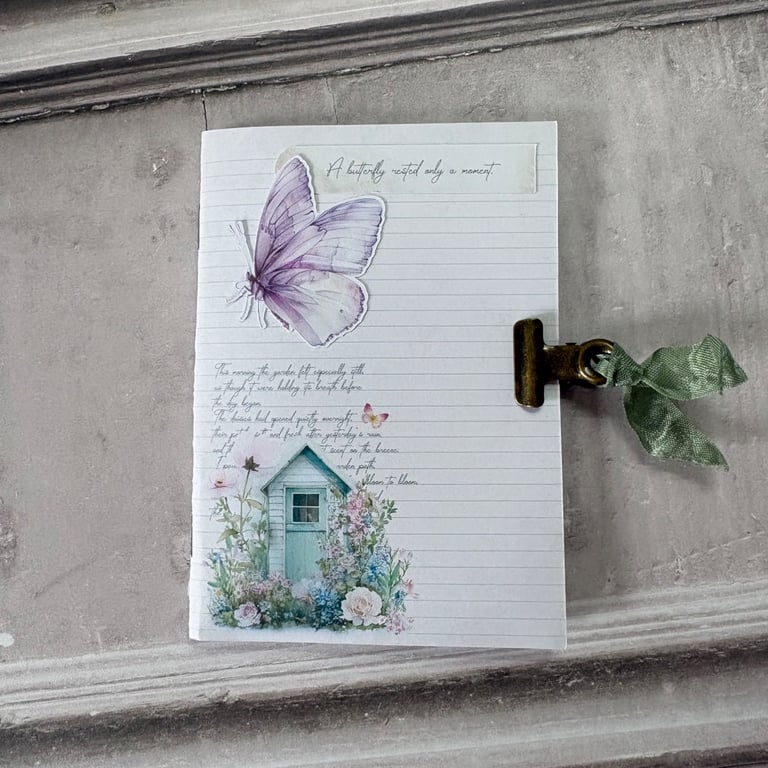 A butterfly rested only a moment.
This morning the garden felt especially still,
as though it were holding its breath before
the day began.
The daisies had opened quietly overnight,
their pet and fresh after yesterday's rain,
and th t scent on the breeze.
I pau rden path,
bloom to bloom,